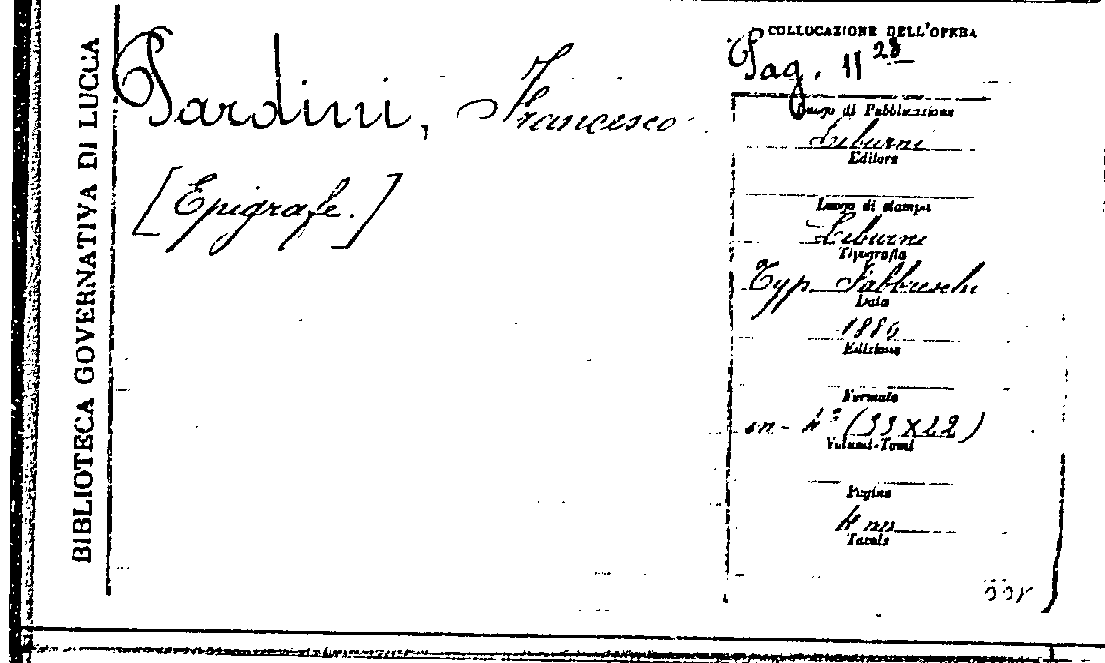 BIBLIOTECA GOVERNATIVA DI LUCCA
Pardini, Francesco
[Epigrafe.]
COLLOCAZIONE DELL'OPERA
Pag. 11 28
Luogo di Pubblicazione
Liburni
Editore
Luogo di stampa
Liburni
Tipografia
Typ. Fabbreschi
Data
Edizione
Formato
in-4° (33x22)
Volumi-Tomi
Pagine
4 nn
Tavole